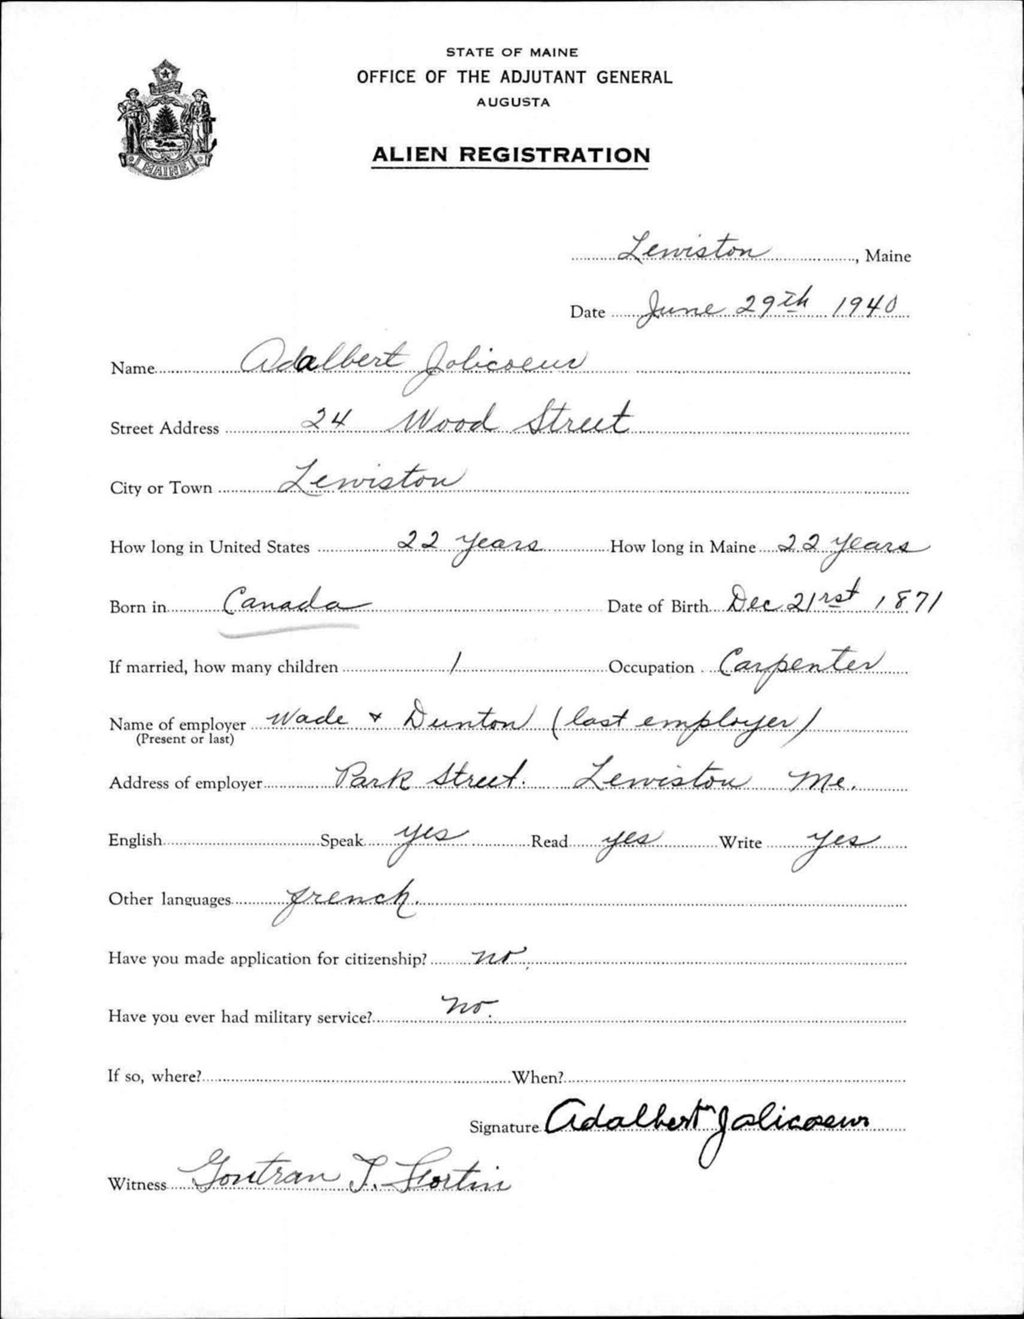 STATE OF MAINE
OFFICE OF THE ADJUTANT GENERAL
AUGUSTA
ALIEN REGISTRATION
MAINE
Lewiston, Maine
Date June 29th 1940
Name Adalbert Jolicoeur
Street Address 24 Wood Street
City or Town Lewiston
How long in United States 22 years How long in Maine 22 years
Born in Canada Date of Birth Dec 21rst 1871
If married, how many children 1 Occupation Carpenter
Name of employer Wade + Dunton (last employer)
(Present or last)
Address of employer Park Street. Lewiston Me.
English Speak yes Read yes Write yes
Other languages french.
Have you made application for citizenship? no.
Have you ever had military service? no.
If so, where? When?
Signature Adalbert Jolicoeur
Witness Gontran T. Fortin